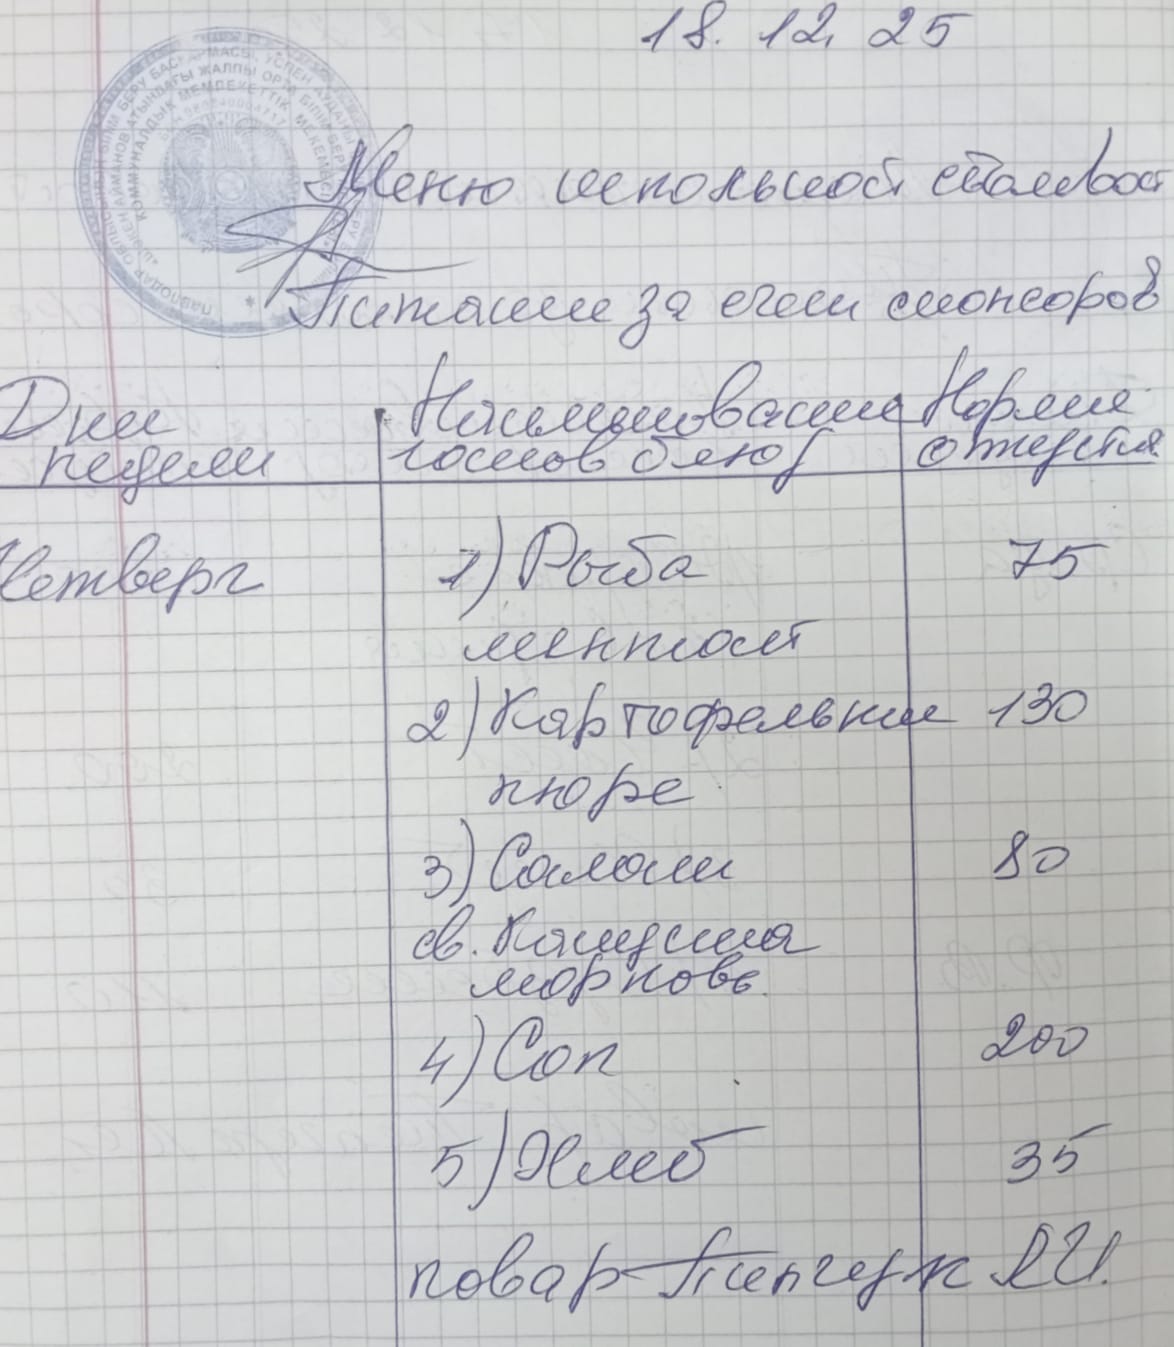 18. 12. 25
Меню школьной столовой
Питание за счет спонсоров
Дни Наименование Норма
недели готов блюд отпуска
Четверг 1) Рыба 75
минтай
2) Картофельное 130
пюре
3) Салат 80
св. Капуста
морковь
4) Сок 200
5) Хлеб 35
повар